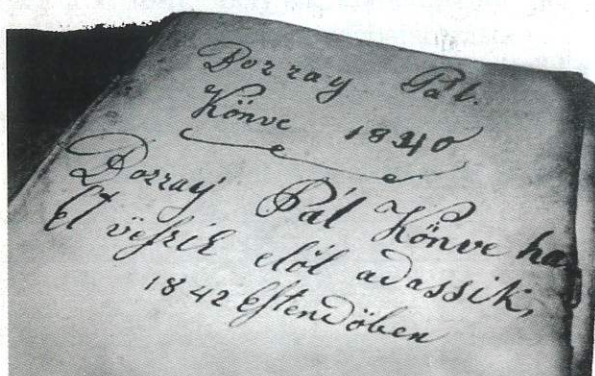 Bozzay Pál.
Könve 1840
Bozzay Pál Könve ha
El veszik elől adassik,
1842 Estendőben